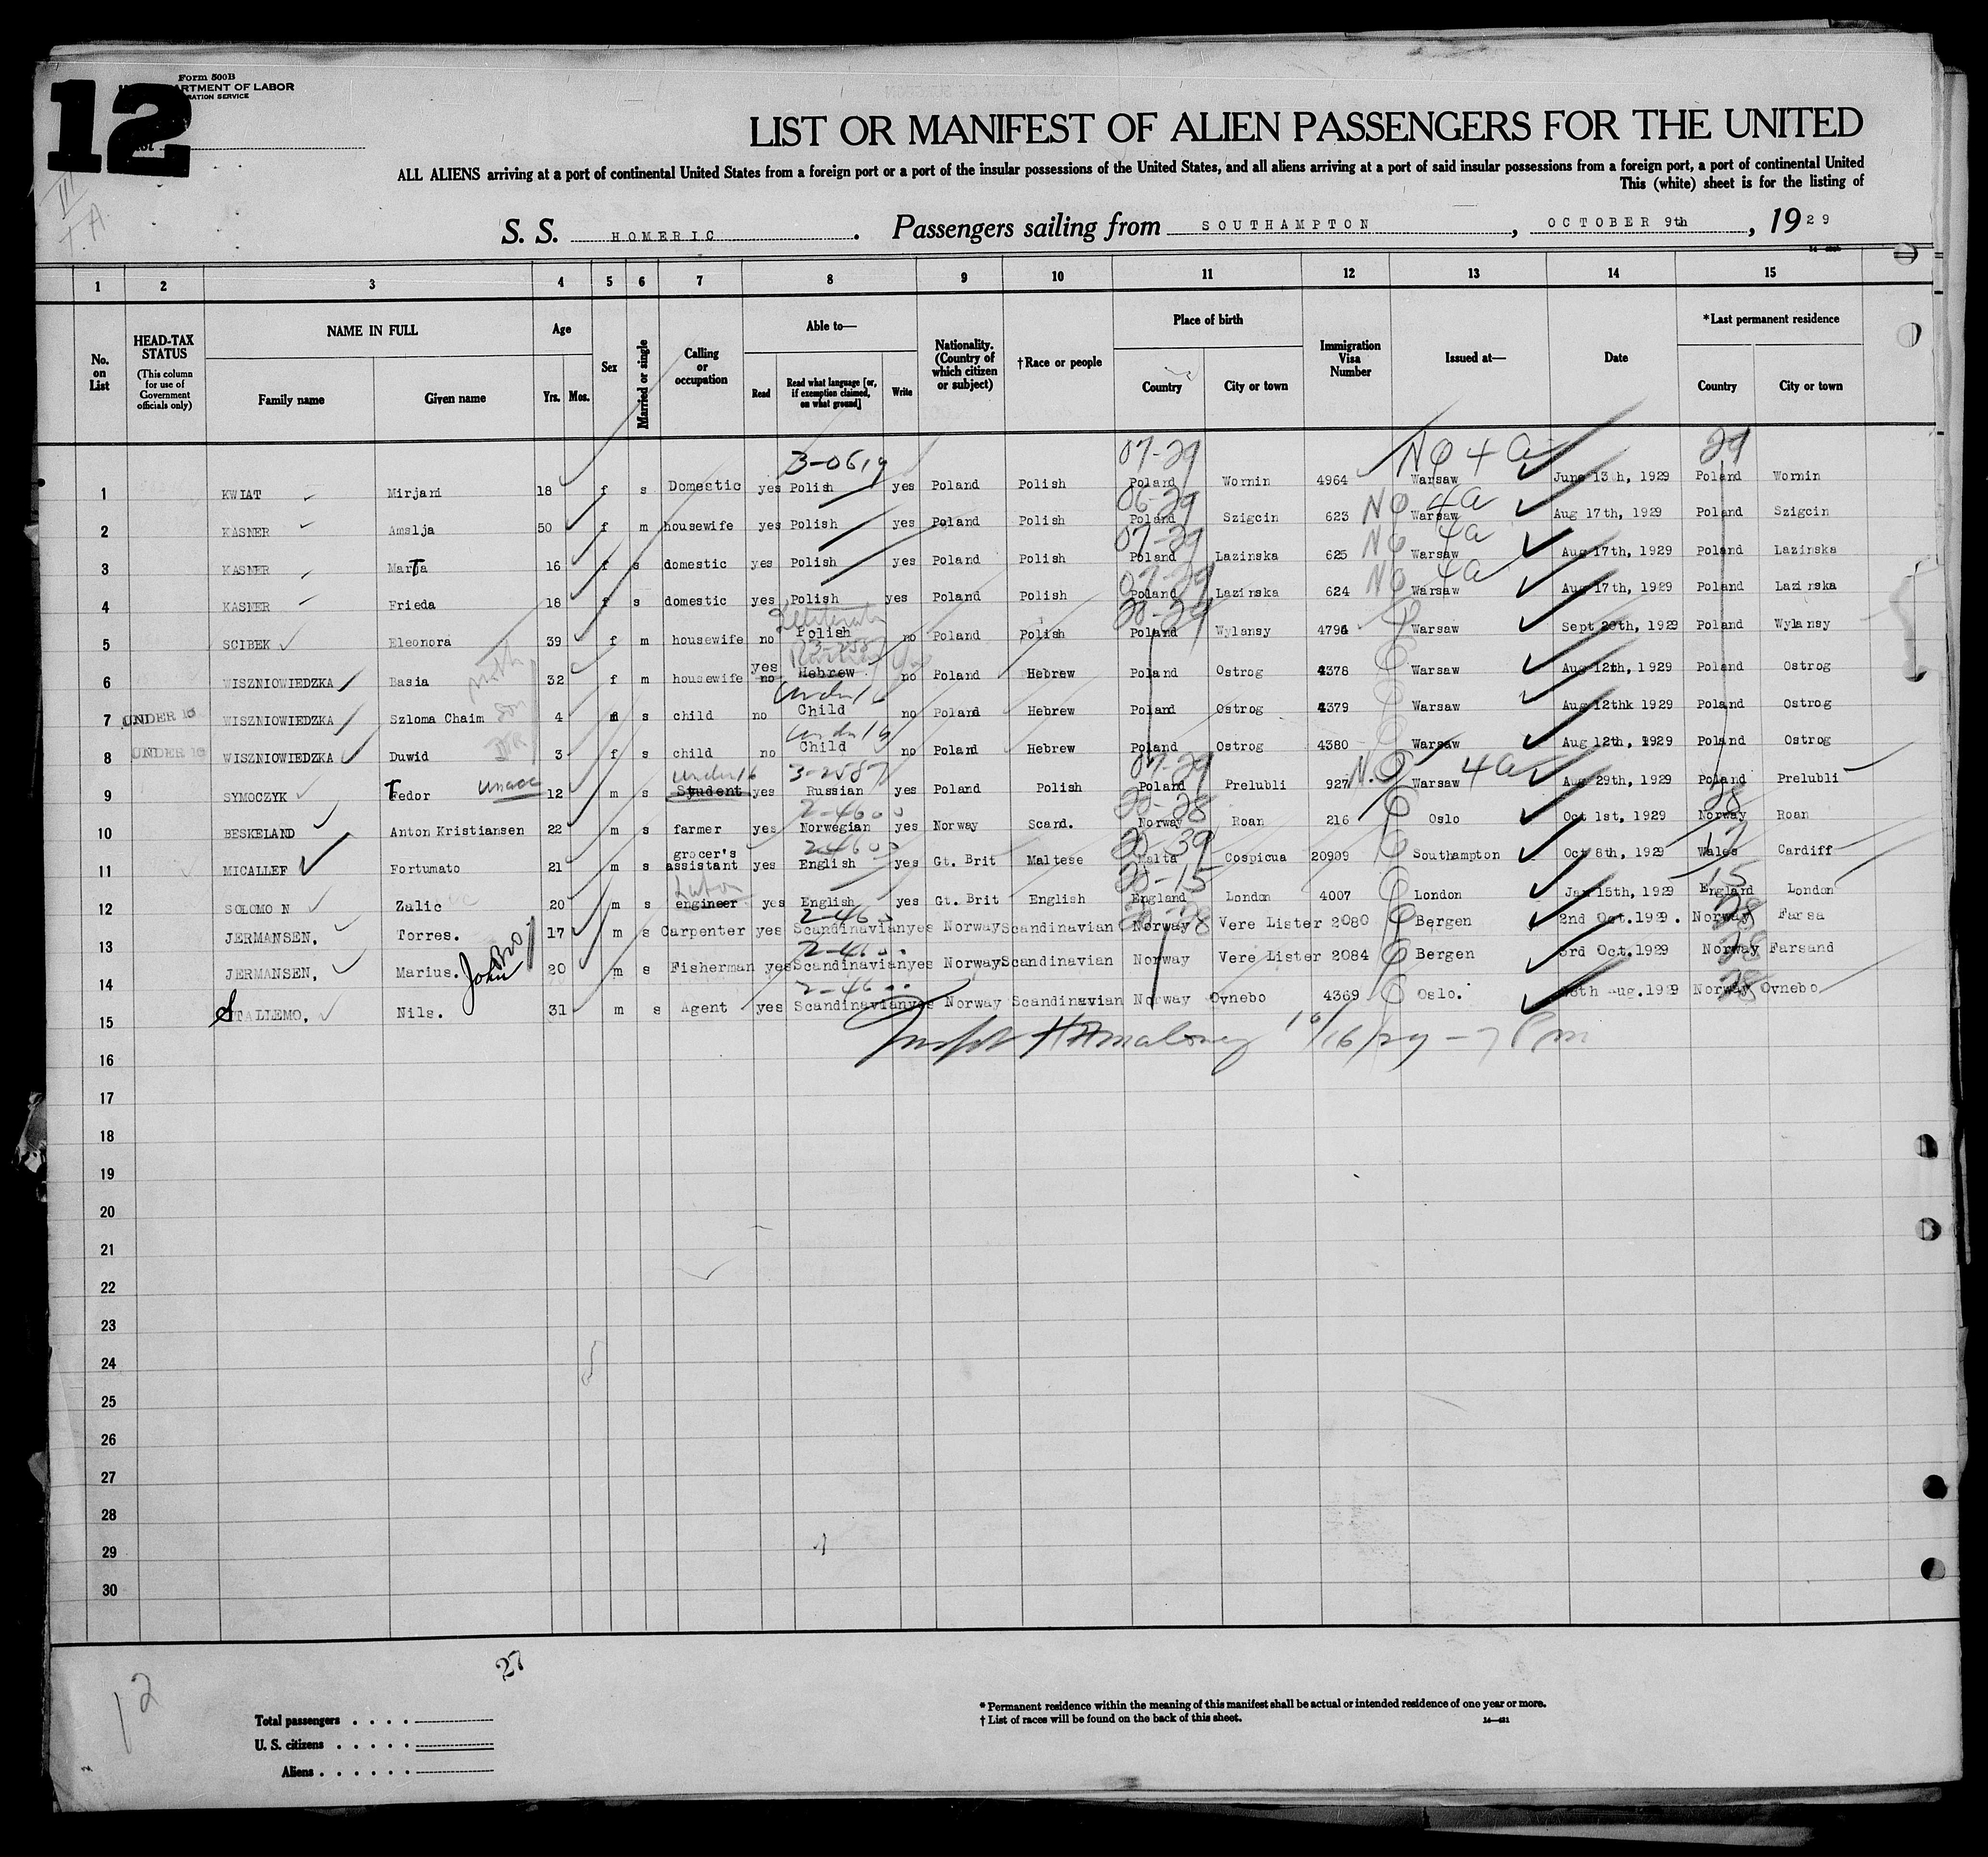 12
Form 500B
DEPARTMENT OF LABOR
IMMIGRATION SERVICE
List
III
T.A.
LIST OR MANIFEST OF ALIEN PASSENGERS FOR THE UNITED
ALL ALIENS arriving at a port of continental United States from a foreign port or a port of the insular possessions of the United States, and all aliens arriving at a port of said insular possessions from a foreign port, a port of continental United
This (white) sheet is for the listing of
S. S. HOMERIC. Passengers sailing from SOUTHAMPTON, OCTOBER 9th, 1929
1 2 3 4 5 6 7 8 9 10 11 12 13 14 15
No. on List
HEAD-TAX STATUS (This column for use of Government officials only)
NAME IN FULL Family name Given name
Age Yrs. Mos.
Sex
Married or single
Calling or occupation
Able to— Read Read what language [or, if exemption claimed, on what ground] Write
Nationality. (Country of which citizen or subject)
†Race or people
Place of birth Country City or town
Immigration Visa Number
Issued at—
Date
*Last permanent residence Country City or town
3-0619 07-29 NQ 4a 29
1 KWIAT Mirjam 18 f s Domestic yes Polish yes Poland Polish Poland Wornin 4964 Warsaw June 13th, 1929 Poland Wornin
06-29 NQ 4a
2 KASNER Amslja 50 f m housewife yes Polish yes Poland Polish Poland Szigcin 623 Warsaw Aug 17th, 1929 Poland Szigcin
07-29 NQ 4a
3 KASNER Marta 16 f s domestic yes Polish yes Poland Polish Poland Lazinska 625 Warsaw Aug 17th, 1929 Poland Lazinska
07-29 NQ 4a
4 KASNER Frieda 18 f s domestic yes Polish yes Poland Polish Poland Lazinska 624 Warsaw Aug 17th, 1929 Poland Lazinska
Illiterate 28-29
5 SCIBEK Eleonora 39 f m housewife no Polish no Poland Polish Poland Wylansy 4794 Warsaw Sept 20th, 1929 Poland Wylansy
yes
6 WISZNIOWIEDZKA Basia 32 f m housewife no Hebrew no Poland Hebrew Poland Ostrog 4378 Warsaw Aug 12th, 1929 Poland Ostrog
under 16
7 UNDER 16 WISZNIOWIEDZKA Szloma Chaim son 4 m s child no Child no Poland Hebrew Poland Ostrog 4379 Warsaw Aug 12thk 1929 Poland Ostrog
under 16
8 UNDER 16 WISZNIOWIEDZKA Duwid 3 f s child no Child no Poland Hebrew Poland Ostrog 4380 Warsaw Aug 12th, 1929 Poland Ostrog
under 16 3-2587 07-29 N.Q 4a
9 SYMOCZYK Fedor unacc 12 m s Syudent yes Russian yes Poland Polish Poland Prelubli 927 Warsaw Aug 29th, 1929 Poland Prelubli
2-4600 28-28 28
10 BESKELAND Anton Kristiansen 22 m s farmer yes Norwegian yes Norway Scand. Norway Roan 216 Oslo Oct 1st, 1929 Norway Roan
2-4600 28-39 17
11 MICALLEF Fortunato 21 m s grocer's assistant yes English yes Gt. Brit Maltese Malta Cospicua 20909 Southampton Oct 8th, 1929 Wales Cardiff
28-15 15
12 SOLOMO N Zalic 20 m s engineer yes English yes Gt. Brit English England London 4007 London Jan 15th, 1929 England London
2-4600 28
13 JERMANSEN, Torres. 17 m s Carpenter yes Scandinavian yes Norway Scandinavian Norway Vere Lister 2080 Bergen 2nd Oct.1929. Norway Farsa
2-4600 28
14 JERMANSEN, Marius. John Bro 20 m s Fisherman yes Scandinavian yes Norway Scandinavian Norway Vere Lister 2084 Bergen 3rd Oct.1929 Norway Farsand
2-4600 28
15 STALLEMO, Nils. 31 m s Agent yes Scandinavian yes Norway Scandinavian Norway Ovnebo 4369 Oslo. Aug.1929 Norway Ovnebo
Maloney 10/16/29 - 7 Pm
16
17
18
19
20
21
22
23
24
25
26
27
28
29
30
27
12
Total passengers
U. S. citizens
Aliens
* Permanent residence within the meaning of this manifest shall be actual or intended residence of one year or more.
† List of races will be found on the back of this sheet.
14—421